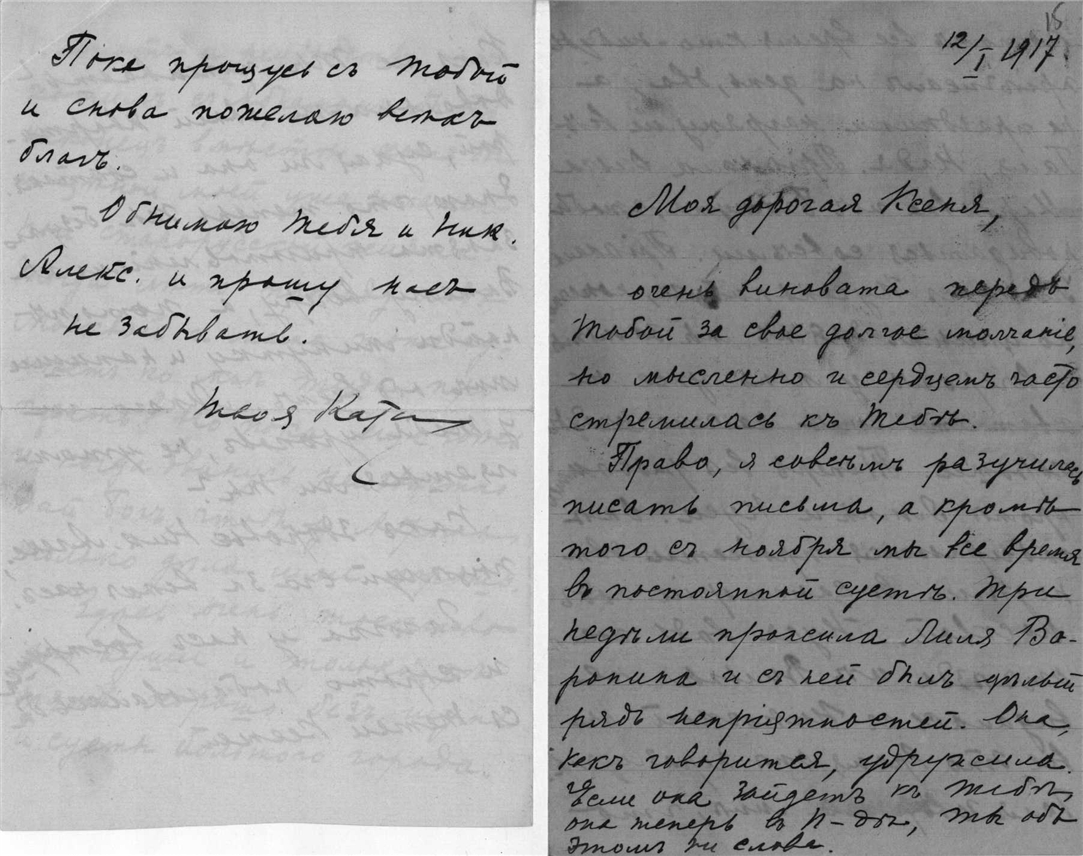 Пока прощусь съ тобой
и снова пожелаю всѣхъ
благъ.
Обнимаю тебя и Ник.
Алекс. и прошу насъ
не забывать.
твоя Катя
15
12/I 1917.
Моя дорогая Ксеня,
очень виновата передъ
тобой за свое долгое молчаніе,
но мысленно и сердцемъ часто
стремилась къ тебѣ.
Право, я совсѣмъ разучилась
писать письма, а кромѣ
того съ ноября мы все время
въ постоянной суетѣ. Три
недѣли прожила Лиля Во-
ронина и съ ней былъ цѣлый
рядъ непріятностей. Она,
какъ говорится, удружила.
Если она зайдетъ къ тебѣ,
она теперь въ П-дѣ, ты объ
этомъ ни слова.